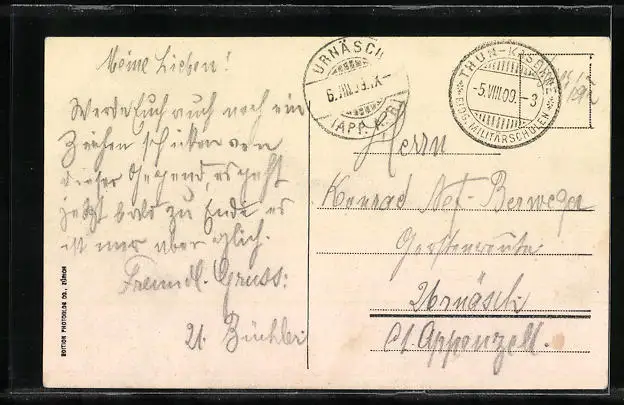 Meine Lieben!
Werde Euch auch noch ein
Zeichen schicken von
dieser Gegend, es geht
jetzt bald zu Ende es
ist nur
Freundl. Gruss:
Büchler
EDITION PHOTOGLOB CO., ZÜRICH
URNÄSCH
6.VIII.09.IX-
(APP. A.RH.)
THUN-KASERNE
-5.VIII.09.-3
EIDG. MILITÄRSCHULEN
Herrn
Konrad Nef-Berweger
Urnäsch
Ct. Appenzell.